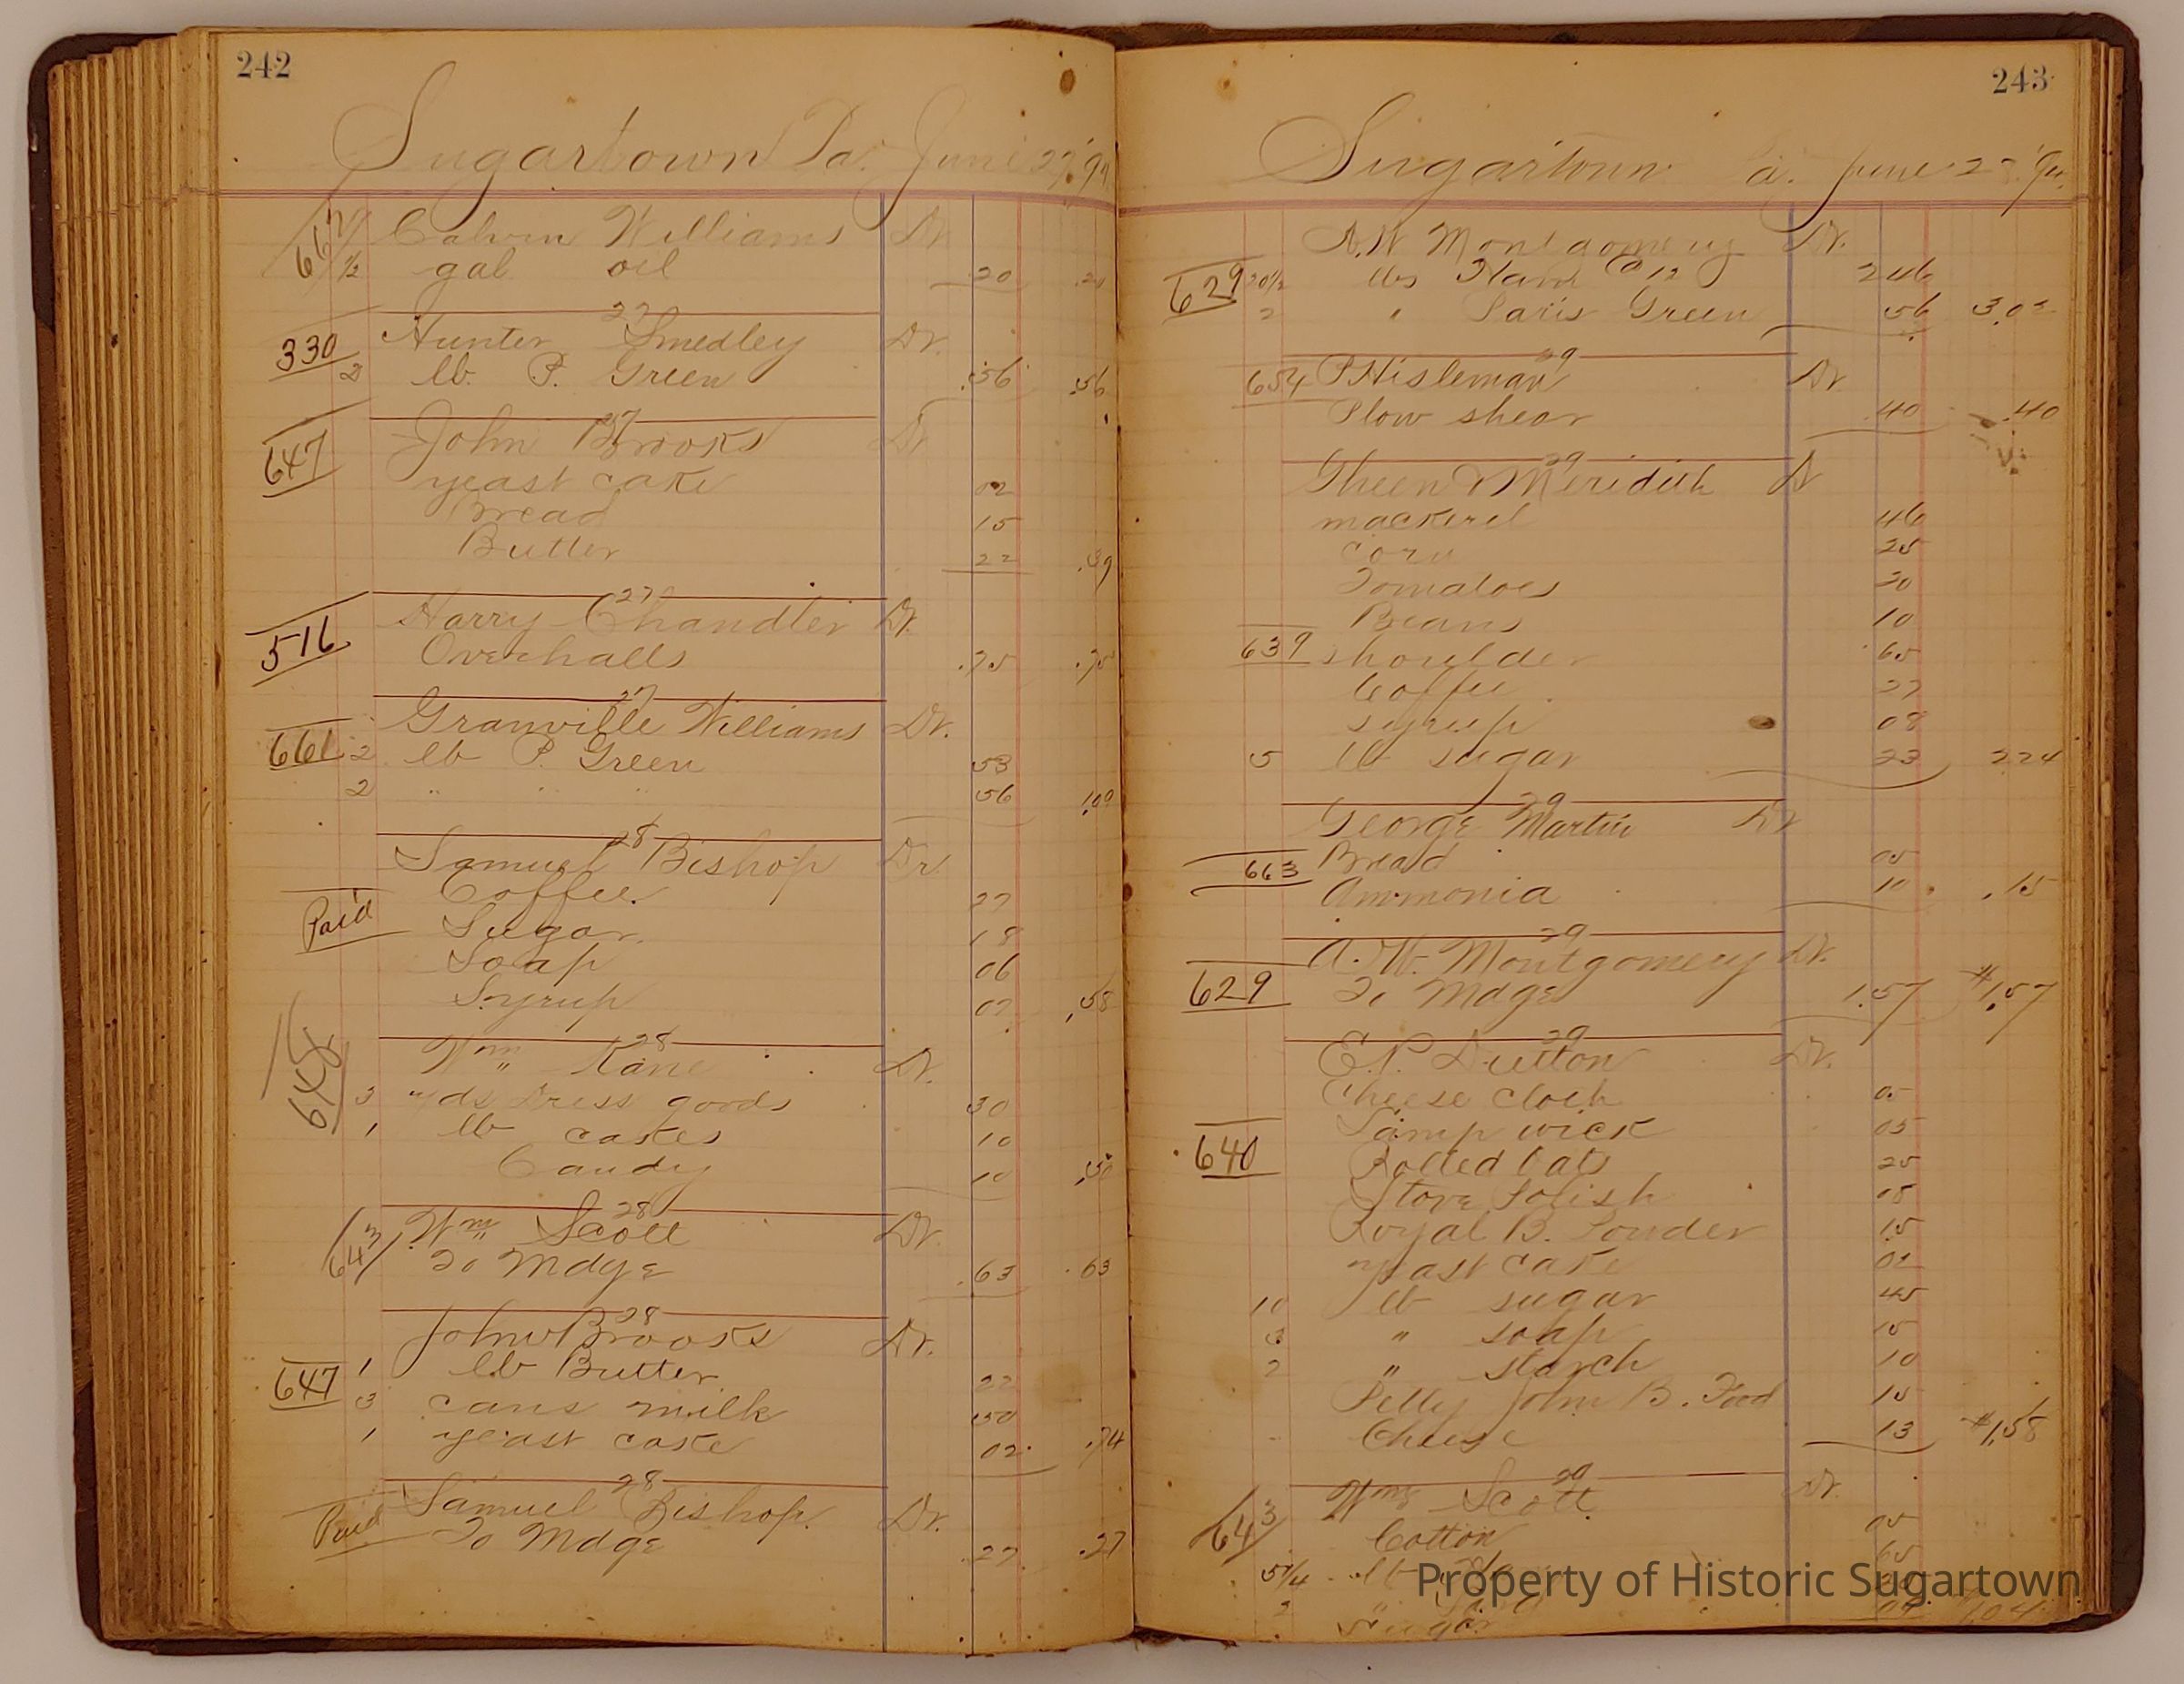 242
Sugartown Pa. June 27, '94
667 Calvin Williams Dr.
1/2 gal oil .20 .20
27
330 Hunter Smedley Dr.
2 lb. P. Green .56 .56
27
647 John Brooks Dr
yeast cake 02
Bread 15
Butter 22 .39
27
516 Harry Chandler Dr.
Overhalls .75 .75
27
Granville Williams Dr.
661 2 lb P. Green 53
2 " " " 56 1.09
28
Samuel Bishop Dr
Coffee. 27
Paid Sugar 18
Soap 06
Syrup 07 .58
28
648 Wm Kane Dr.
3 yds Dress goods 30
1 lb cakes 10
Candy 10 .50
28
643 Wm Scott Dr.
To Mdge .63 .63
28
John Brooks Dr.
1 lb Butter 22
647 3 cans milk 50
1 yeast cake 02 .74
28
Paid Samuel Bishop. Dr.
To Mdge .27 .27
243
Sugartown a. June 2
A. W Montgomery Dr.
629 20 1/2 lbs Ham @ 12 246
2 " Paris Green 56 3.02
29
654 P Hisleman Dr
Plow shear .40 .40
29
Gheen & Meridith Dr
mackerel 46
corn 25
Tomatoes 20
Beans 10
639 shoulder 65
Coffee 27
syrup 08
5 lb sugar 23 224
29
George Martin Dr
663 Bread 05
Ammonia 10 .15
29
A. W. Montgomery Dr.
629 To Mdge 1.57 $1.57
29
E. P. Dutton Dr.
Cheese cloth 05
Lamp wick 05
640 Rolled Oats 25
Stove Polish 08
Royal B. Powder 15
yeast cake 02
10 lb sugar 45
3 " soap 15
2 " starch 10
Pelly John B. Food 15
Cheese 13 $1.58
29
643 Wm Scott Dr.
Cotton 05
5 1/4 lb
2 "
Sugar
Property of Historic Sugartown